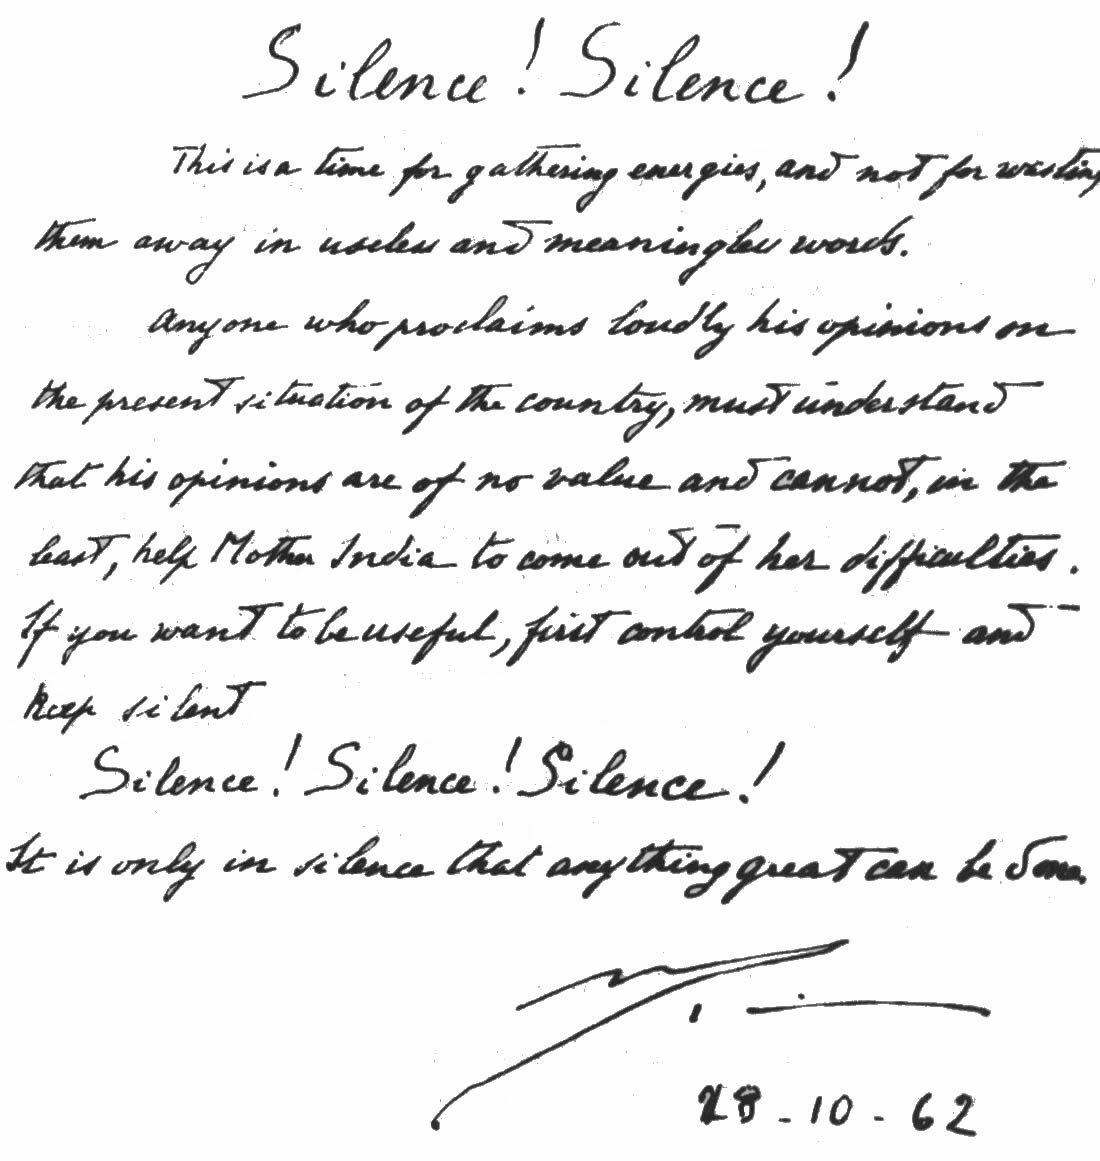 Silence! Silence!
This is a time for gathering energies, and not for wasting
them away in useless and meaningless words.
Anyone who proclaims loudly his opinions on
the present situation of the country, must understand
that his opinions are of no value and cannot, in the
least, help Mother India to come out of her difficulties.
If you want to be useful, first control yourself and
keep silent
Silence! Silence! Silence!
It is only in silence that anything great can be done.
28-10-62